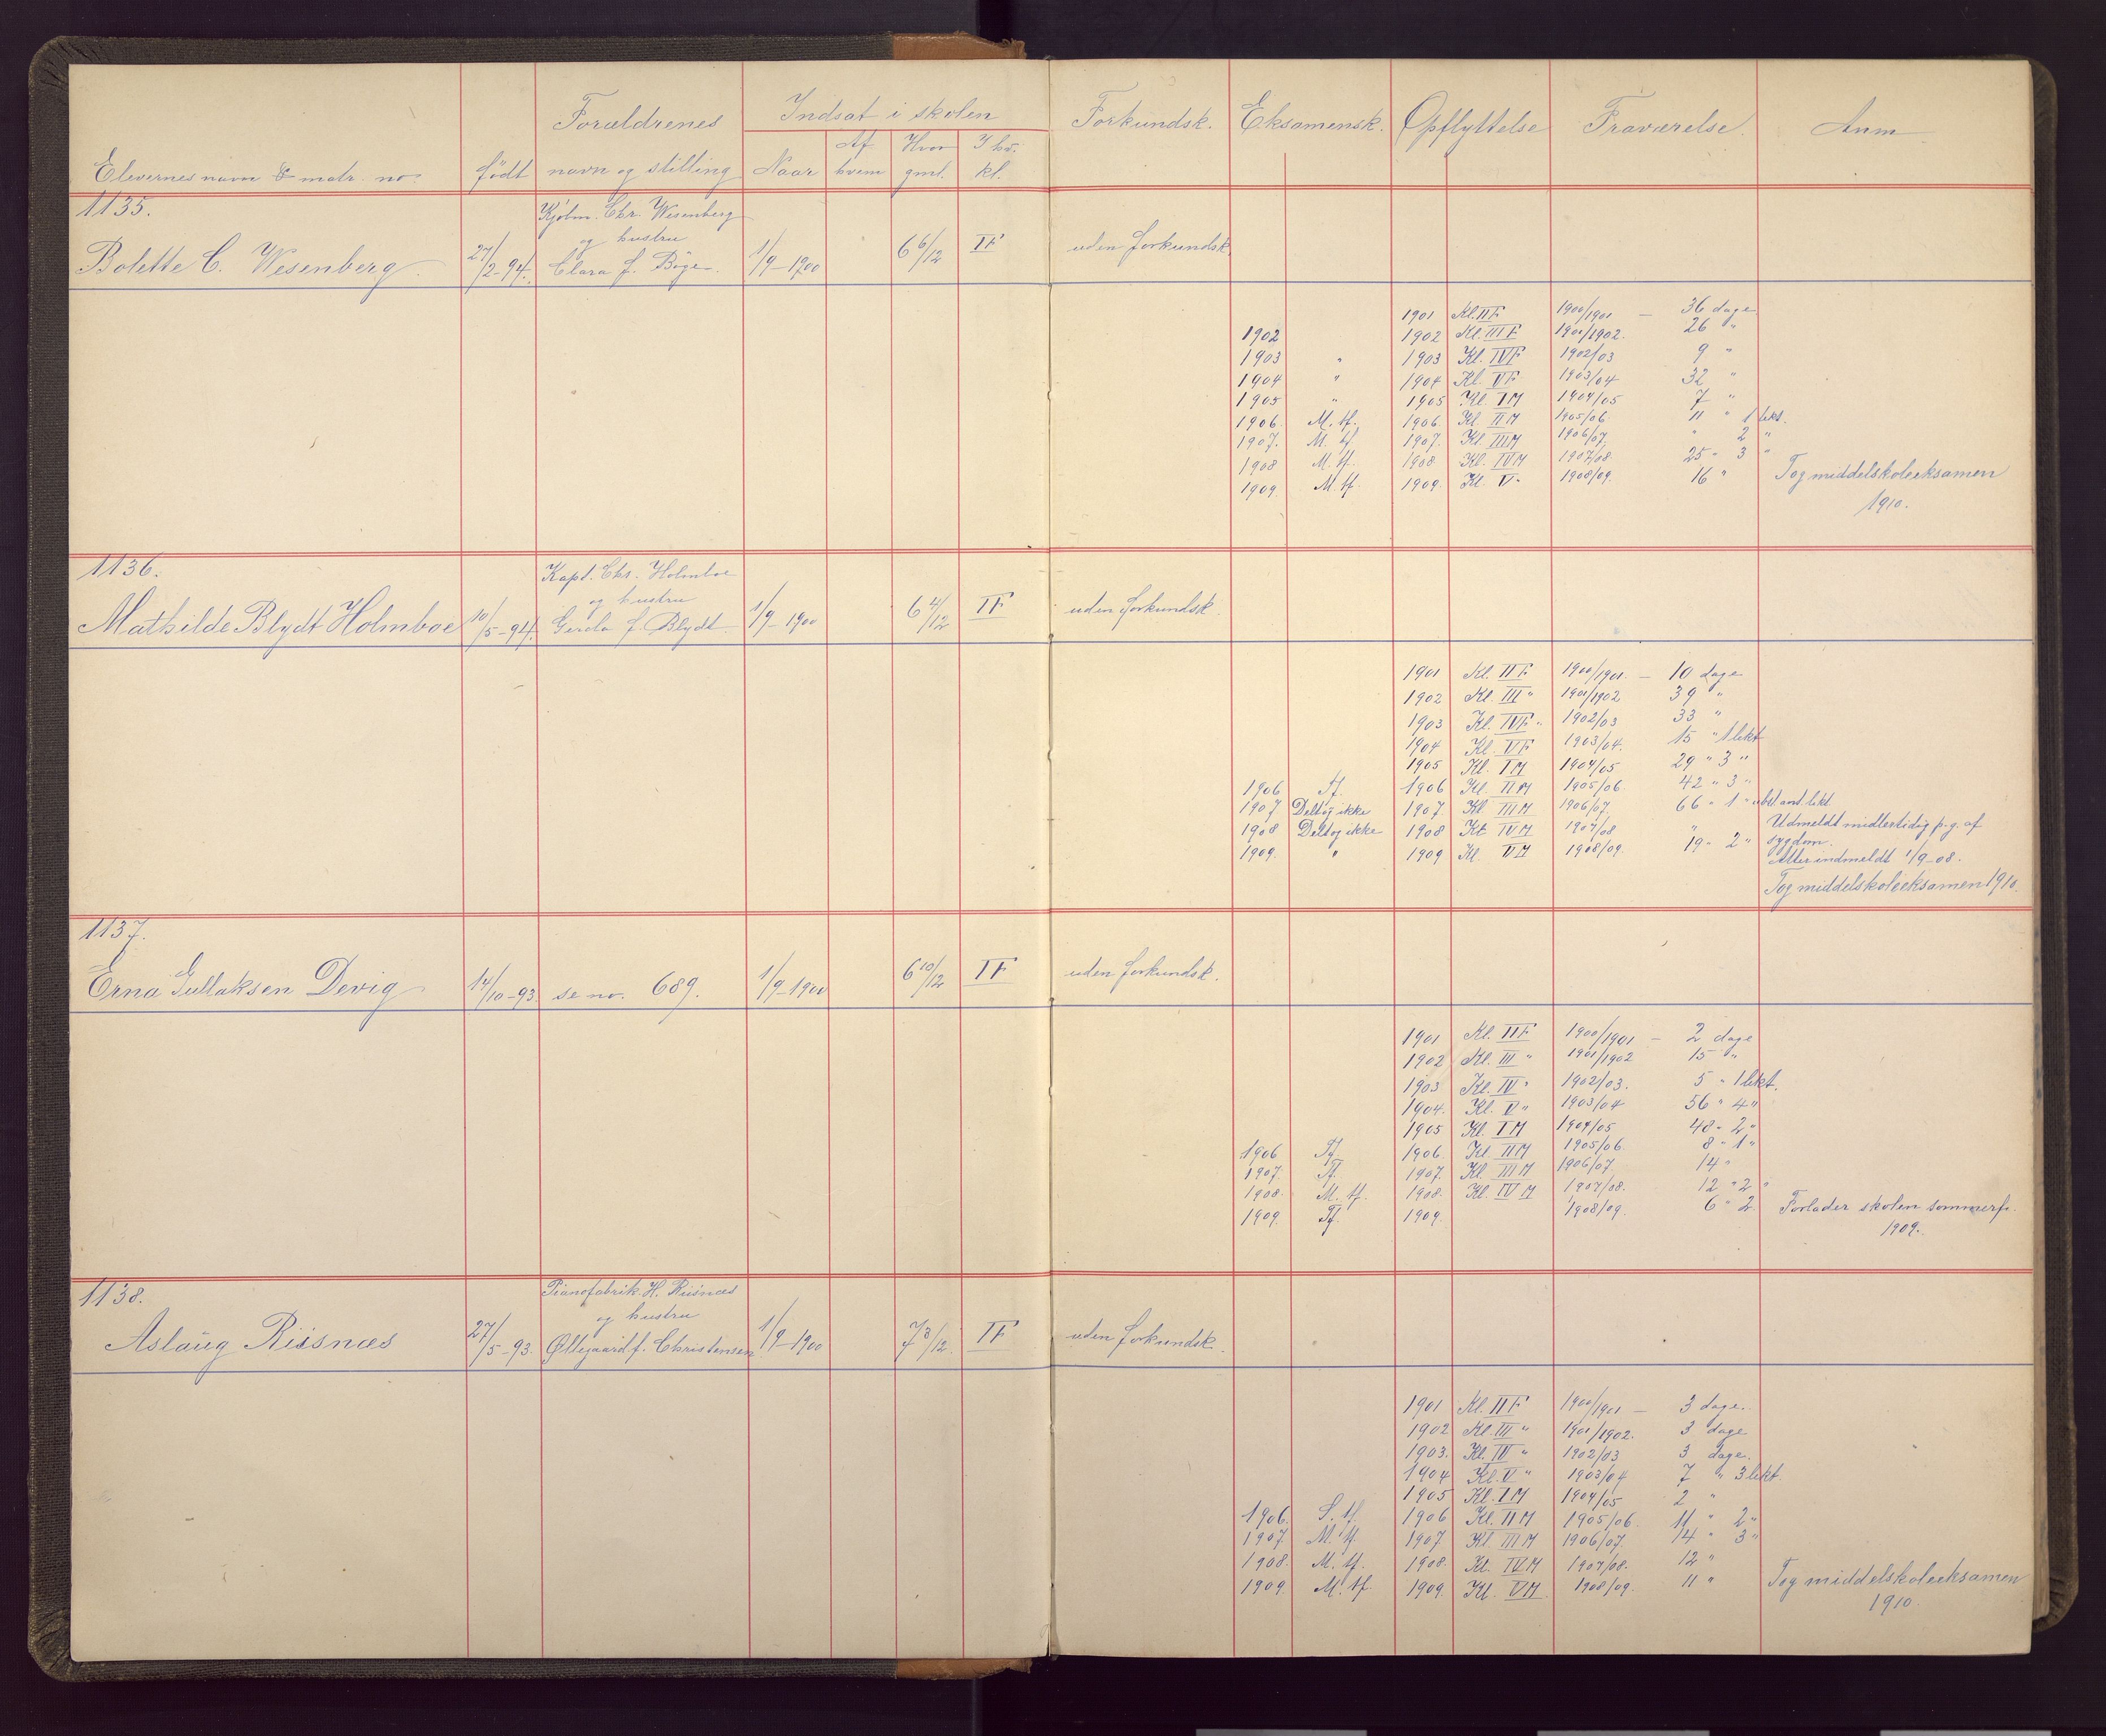 Forældrenes Indsat i skolen Forkundsk. Eksamensk. Opflyttelse Fraværelse. Anm
Elevernes navn & matr. no. født navn og stilling Naar Af hvem Hvor gml. I hv. kl.
1135.
Kjøbm. Chr. Wesenberg
og hustru
Bolette C. Wesenberg 27/2-94. Clara f. Böge. 1/9-1900 6 6/12 I F uden forkundsk.
1901 Kl. II F 1900/1901 — 36 dage
1902 1902 Kl. III F 1901/1902. 26 "
1903 " 1903 Kl. IV F 1902/03 9 "
1904 " 1904 Kl. V F 1903/04 32 "
1905 " 1905 Kl. I M 1904/05 7 "
1906 M. tf. 1906. Kl. II M 1905/06 11 " 1 lekt.
1907. M. tf 1907. Kl. III M 1906/07. " 2 "
1908 M. tf. 1908 Kl. IV M 1907/08. 25 " 3 "
1909 M. tf. 1909. Kl. V " 1908/09. 16 " Tog middelskoleeksamen
1910.
1136.
Kapt. Chr. Holmboe
og hustru
Mathilde Blydt Holmboe 10/5-94. Gerda f. Blydt. 1/9-1900 6 4/12 I F uden forkundsk.
1901 Kl. II F 1900/1901. — 10 dage
1902 Kl. III " 1901/1902 39 "
1903 Kl. IV F " 1902/03 33 "
1904 Kl. V F 1903/04. 15 " 1 lekt
1905 Kl. I M 1904/05 29 " 3 "
1906 Tf. 1906 Kl. II M 1905/06. 42 " 3 "
1907 Deltog ikke 1907 Kl. III M 1906/07 66 " 1 " ubet. ant. lekt.
1908 Deltog ikke 1908 Kl. IV M 1907/08 " Udmeldt midlertidig p.g. af
1909. " 1909 Kl. V M 1908/09. 19 " 2 " sygdom.
Atter indmeldt 1/9-08.
Tog middelskoleeksamen 1910.
1137.
Erna Gullaksen Devig 14/10-93 se no. 689. 1/9-1900 6 10/12 I F uden forkundsk.
1901 Kl. II F 1900/1901 — 2 dage
1902 Kl. III " 1901/1902 15 "
1903 Kl. IV " 1902/03. 5 " 1 lekt.
1904. Kl. V " 1903/04 56 " 4 "
1905 Kl. I M 1904/05 48 " 2 "
1906 Tf. 1906. Kl. II M 1905/06. 8 " 1 "
1907. Tf. 1907. Kl. III M 1906/07. 14 "
1908. M. tf. 1908. Kl. IV M 1907/08. 12 " 2 "
1909. Tf. 1909. 1908/09. 6 " 2 Forlader skolen sommerf.
1909.
1138.
Pianofabrik. H. Riisnæs
og hustru
Aslaug Riisnæs 27/5-93. Øllegaard f. Christensen 1/9-1900 7 3/12. I F uden forkundsk.
1901 Kl. II F 1900/1901 — 3 dage.
1902 Kl. III " 1901/1902. 3 dage
1903. Kl. IV " 1902/03 3 dage.
1904 Kl. V " 1903/04 7 " 3 lekt.
1905 Kl. I M 1904/05 2 "
1906. S. tf. 1906 Kl. II M 1905/06. 11 " 2 "
1907. M. tf. 1907. Kl. III M 1906/07. 14 " 3 "
1908. M. tf. 1908. Kl. IV M 1907/08. 12 "
1909. M. tf 1909. Kl. V M 1908/09. 11 " Tog middelskoleeksamen
1910.